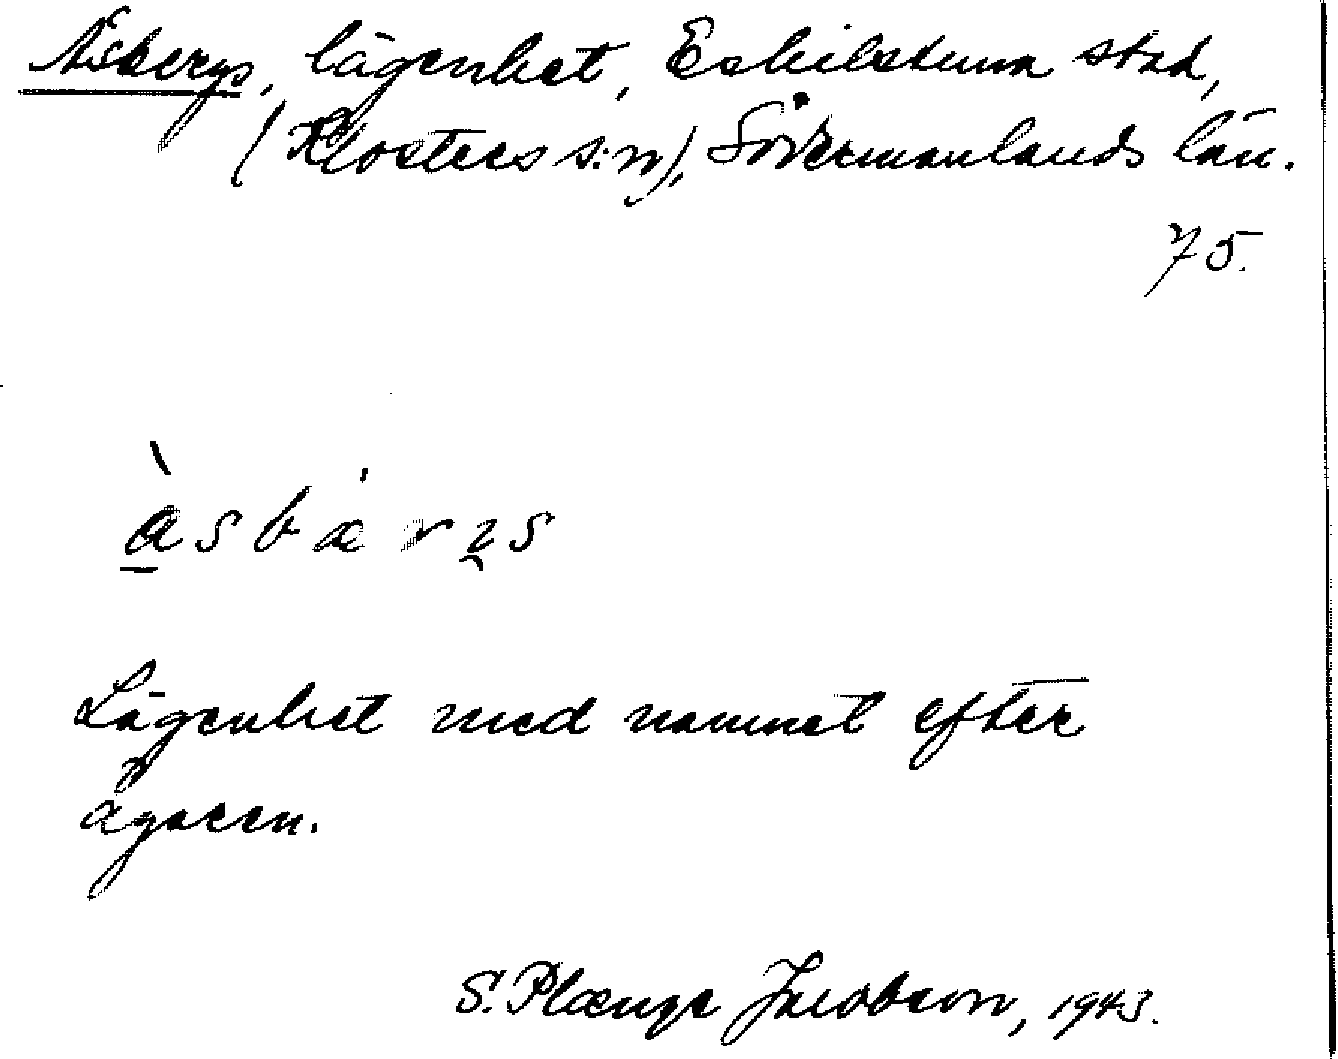 Åsbergs, lägenhet, Eskilstuna stad,
(Klosters s:n), Södermanlands län.
75.
Lägenhet med namnet efter
ägaren.
S. Plænge Jacobson, 1943.